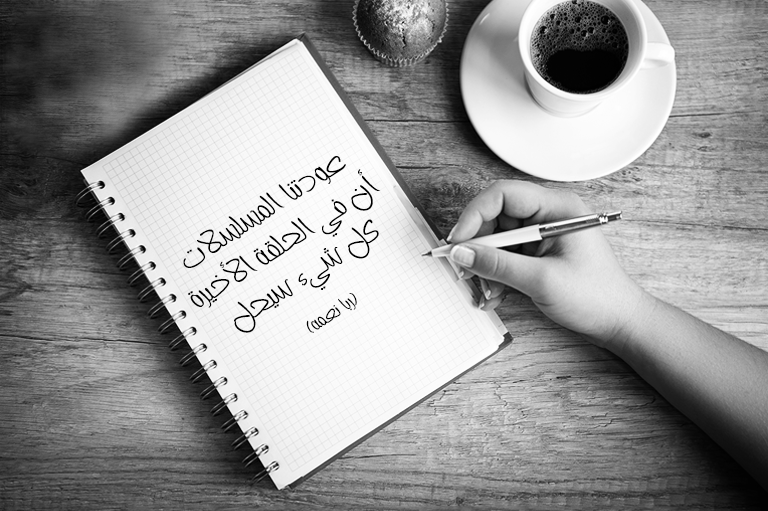 عودتنا المسلسلات
أن في الحلقة الأخيرة
كل شيء سيحل
(ربا نعمه)